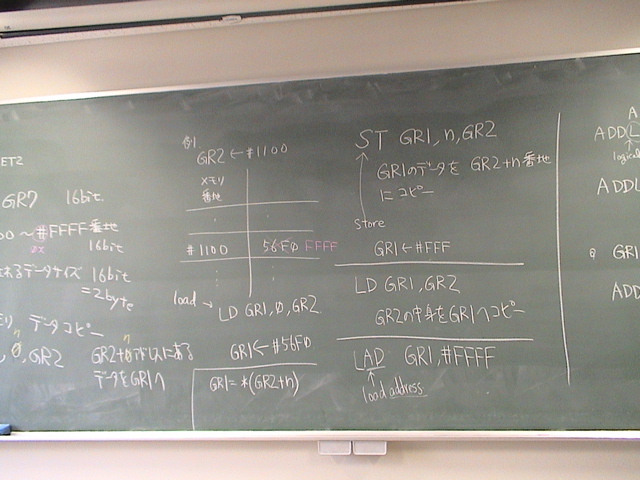 ET2
GR7 16bit
00 ～ #FFFF番地
16bit
れるデータサイズ 16bit
= 2byte
データコピー
n
0, GR2 GR2+0アドレスにある
データをGR1へ
例.
GR2 ← #1100
メモリ
番地
#1100 56F0 FFFF
load → LD GR1, 0, GR2
GR1 ← #56F0
GR1 = *(GR2+n)
ST GR1, n, GR2
GR1のデータを GR2+n番地
にコピー
store
GR1 ← #FFF
LD GR1, GR2
GR2の中身をGR1へコピー
LAD GR1, #FFFF
load address
A
ADDL
logical
ADDL
GR1
ADD